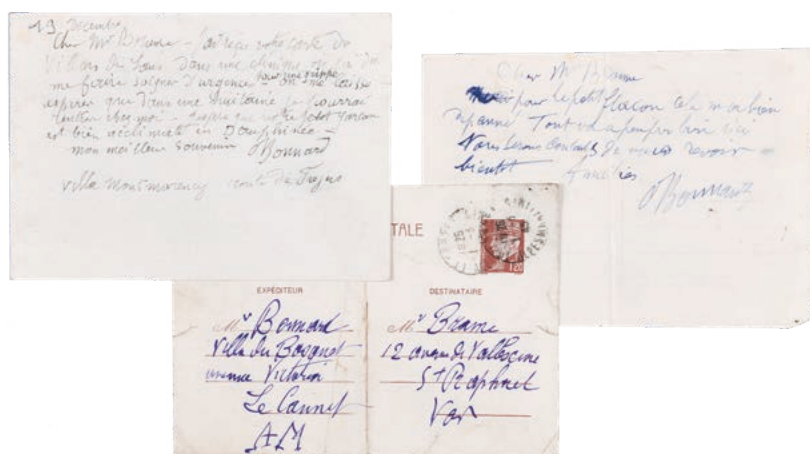 19 Decembre
Cher Mr Brame - J'ai reçu votre carte de
Villars de Lans dans une clinique où j'ai dû
me faire soigner d'urgence pour une grippe on me laisse
espérer que dans une huitaine je pourrai
rentrer chez moi - J'espère que votre petit garçon
est bien acclimaté en Dauphiné -
mon meilleur souvenir PBonnard
Villa Montmorency route de Frejus
Cher Mr Brame
Merci pour le petit flacon cela m'a bien
dépanné Tout va à peu près bien ici
Nous serons contents de vous revoir
bientôt Amitiés
PBonnard
TALE
1,20
EXPÉDITEUR
Mr Bonnard
Villa du Bosquet
avenue Victoria
Le Cannet
AM
DESTINATAIRE
Mr Brame
12 avenue de Valescure
St Raphael
Var